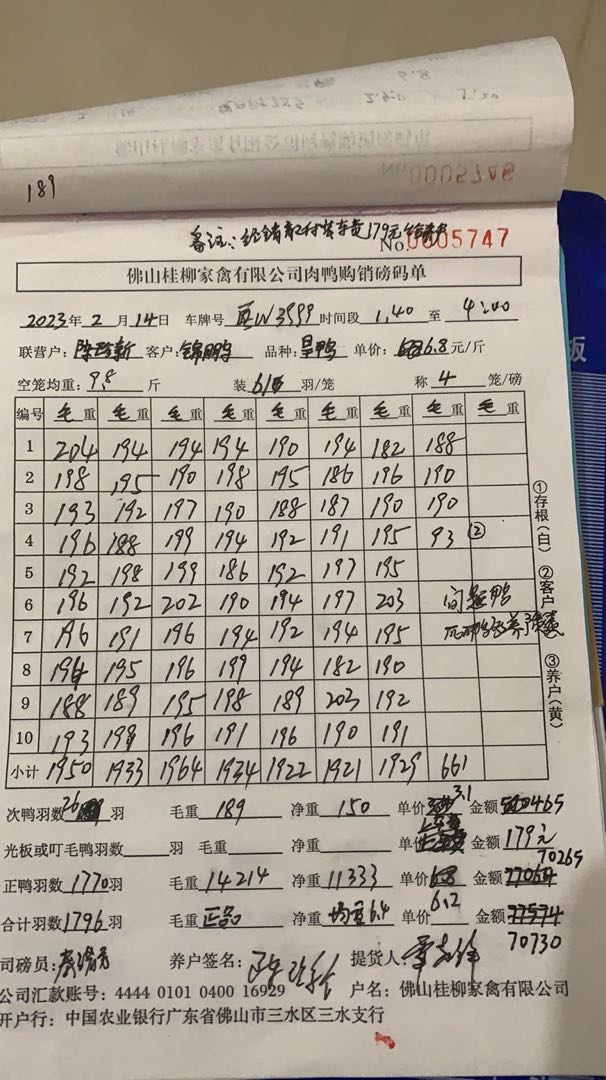 6.8
2.40
No 0005746
189
备注:经销商付装车费179元
No.0005747
佛山桂柳家禽有限公司肉鸭购销磅码单
2023年2月14日 车牌号 W3999 时间段 1.40 至 4:00
联营户: 客户:锦鹏鸭 品种: 鸭 单价: 6.8元/斤
空笼均重:9.8 斤 装 6/8 羽/笼 称 4 笼/磅
编号 毛重 毛重 毛重 毛重 毛重 毛重 毛重 毛重 毛重
1 204 194 194 194 190 194 182 188
2 198 195 190 198 195 186 196 190
3 193 192 197 190 188 187 190 190
4 196 188 199 194 192 191 195 93 ②
5 192 198 199 186 192 197 195
6 196 192 202 190 194 197 203 问题鸭
7 196 191 196 194 192 194 195
8 194 195 196 199 194 182 190
9 188 189 195 198 189 203 192
10 193 199 196 191 196 190 191
小计 1950 1933 1964 1934 1922 1921 1929 661
①存根(白) ②客户 ③养户(黄)
次鸭羽数 26 羽 毛重 189 净重 150 单价 3.1 金额 465
光板或叮毛鸭羽数 羽 毛重 净重 单价 金额 179元
正鸭羽数 1770羽 毛重 14214 净重 11333 单价 6.2 金额 70265
合计羽数 1796 羽 毛重 正品 净重 均重6.4 单价 金额 70730
司磅员: 养户签名: 提货人:
公司汇款账号:4444 0101 0400 16929 户名:佛山桂柳家禽有限公司
开户行:中国农业银行广东省佛山市三水区三水支行